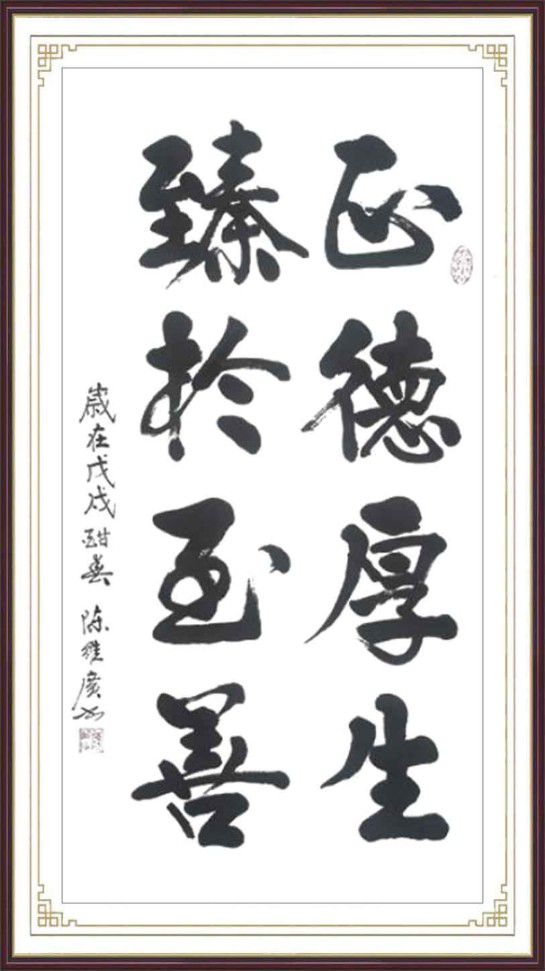 正德厚生
臻於至善
歲在戊戌酣春 陈维广书